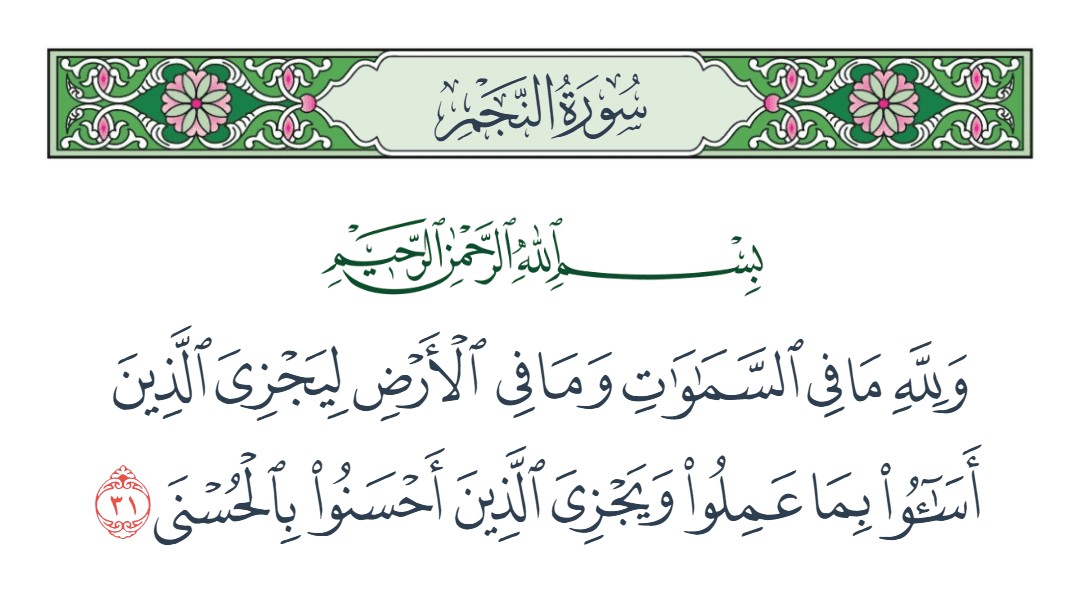 سُورَةُ النَّجْمِ
بِسْمِ ٱللَّهِ ٱلرَّحْمَٰنِ ٱلرَّحِيمِ
وَلِلَّهِ مَا فِي ٱلسَّمَٰوَٰتِ وَمَا فِي ٱلْأَرْضِ لِيَجْزِيَ ٱلَّذِينَ
أَسَـٰٓـُٔوا۟ بِمَا عَمِلُوا۟ وَيَجْزِيَ ٱلَّذِينَ أَحْسَنُوا۟ بِٱلْحُسْنَى ٣١